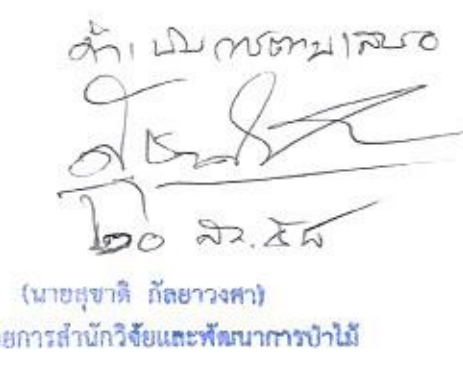 ดำเนินการตามเสนอ
๒๐ สค. ๕๘
(นายสุชาติ กัลยาวงศา)
ยการสำนักวิจัยและพัฒนาการป่าไม้